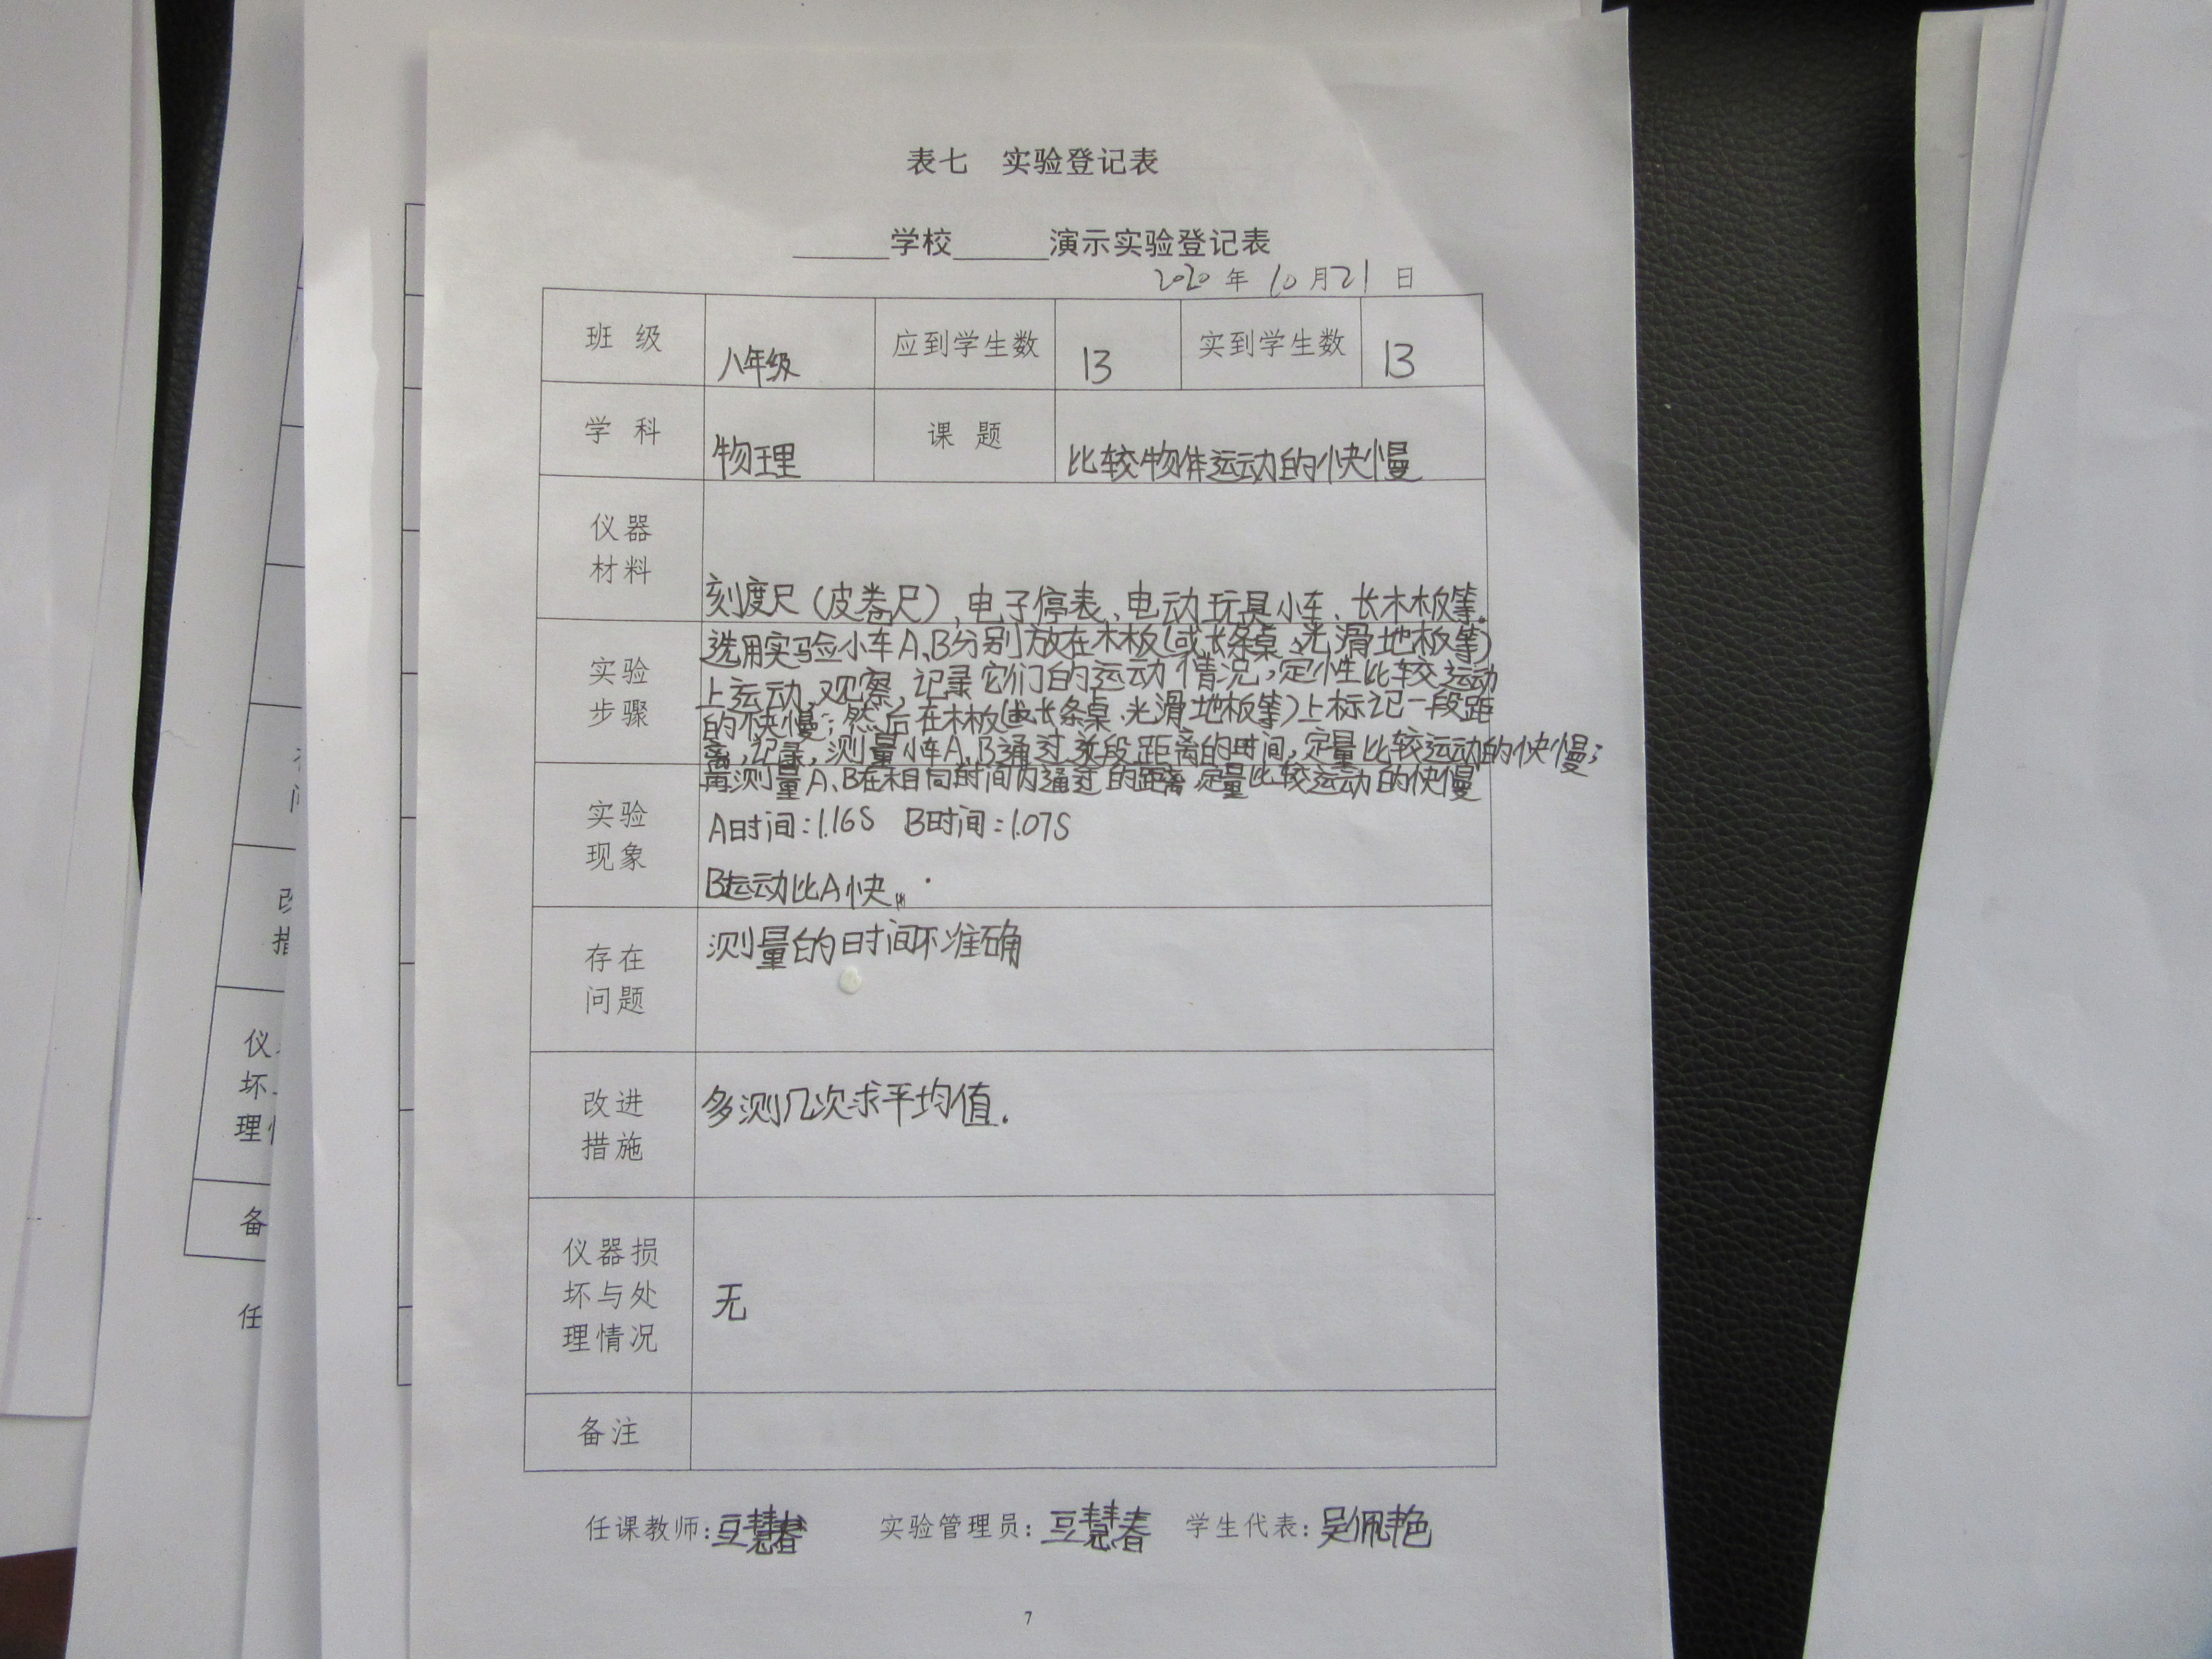 表七 实验登记表
______学校______演示实验登记表
2020 年 10 月 21 日
班 级 八年级 应到学生数 13 实到学生数 13
学 科 物理 课 题 比较物体运动的快慢
仪器
材料
刻度尺(皮卷尺),电子停表、电动玩具小车、长木板等.
实验
步骤
选用实验小车A、B分别放在木板(或长条桌、光滑地板等)
上运动,观察,记录它们的运动情况,定性比较运动
的快慢;然后在木板(或长条桌、光滑地板等)上标记一段距
离,记录,测量小车A、B通过这段距离的时间,定量比较运动的快慢;
再测量A、B在相同时间内通过的距离,定量比较运动的快慢
实验
现象
A时间:1.16S B时间:1.07S
B运动比A快
存在
问题
测量的时间不准确
改进
措施
多测几次求平均值.
仪器损
坏与处
理情况
无
备注
任课教师:豆慧春 实验管理员:豆慧春 学生代表:吴佩艳
7
改
措
仪
坏
理
备
任